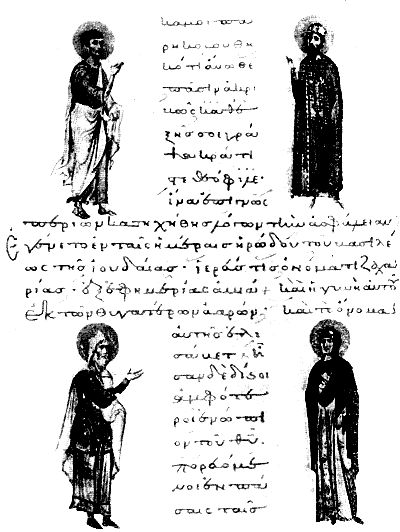 κάμοὶ πα
ρηκολουθη
κότι ἄνωθε
πᾶσιν ἀκρι
βῶς καθε
ξῆς σοι γρά
ψαι κράτι
στε θεόφιλε·
ἵνα ἐπιγνῶς
περὶ ὧν κατηχήθης λόγων τὴν ἀσφάλειαν
Ἐγένετο ἐν ταῖς ἡμέραις ἡρώδου τοῦ βασιλέ
ως τῆς ἰουδαίας· ἱερεύς τις ὀνόματι ζαχα
ρίας· ἐξ ἐφημερίας ἀβιά· καὶ ἡ γυνὴ αὐτοῦ
ἐκ τῶν θυγατέρων ἀαρών· καὶ τὸ ὄνομα
αὐτῆς ἐλι
σάβετ· ἦ
σαν δὲ δίκαιοι
ἀμφότε
ροι ἐνώπι
ον τοῦ θυ·
πορευόμε
νοι ἐν πά
σαις ταῖς